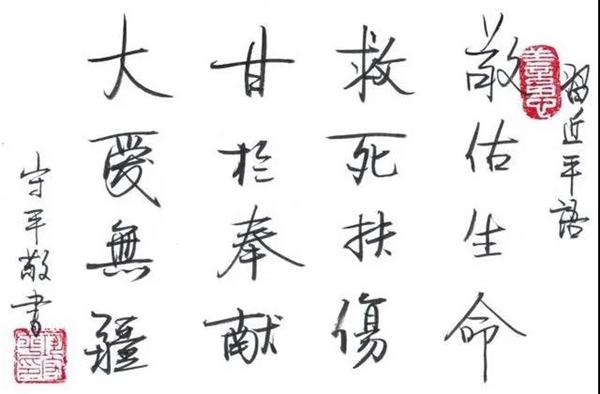 習近平語
敬估生命
救死扶傷
甘於奉献
大愛無疆
守平敬書